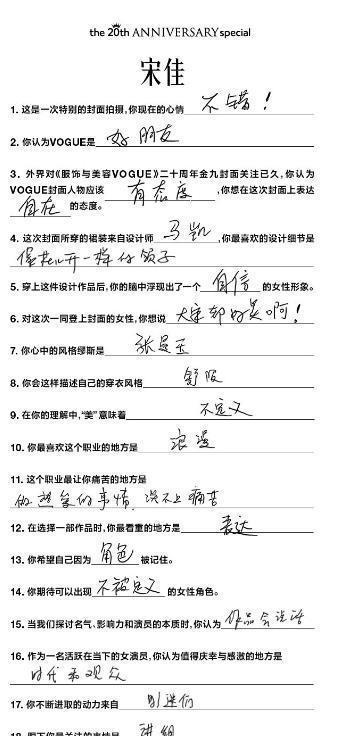 the 20th ANNIVERSARY special
宋佳
1. 这是一次特别的封面拍摄,你现在的心情 不错!
2. 你认为VOGUE是 好朋友
3. 外界对《服饰与美容VOGUE》二十周年金九封面关注已久,你认为
VOGUE封面人物应该 有态度 ,你想在这次封面上表达
自在 的态度。
4. 这次封面所穿的裙装来自设计师 马凯 ,你最喜欢的设计细节是
像花儿开一样的领子
5. 穿上这件设计作品后,你的脑中浮现出了一个 自信 的女性形象。
6. 对这次一同登上封面的女性,你想说 大家都好美啊!
7. 你心中的风格缪斯是 张曼玉
8. 你会这样描述自己的穿衣风格 舒服
9. 在你的理解中,“美”意味着 不定义
10. 你最喜欢这个职业的地方是 浪漫
11. 这个职业最让你痛苦的地方是
做想象的事情,谈不上痛苦
12. 在选择一部作品时,你最看重的地方是 表达
13. 你希望自己因为 角色 被记住。
14. 你期待可以出现 不被定义 的女性角色。
15. 当我们探讨名气、影响力和演员的本质时,你认为 作品会说话
16. 作为一名活跃在当下的女演员,你认为值得庆幸与感激的地方是
时代和观众
17. 你不断进取的动力来自